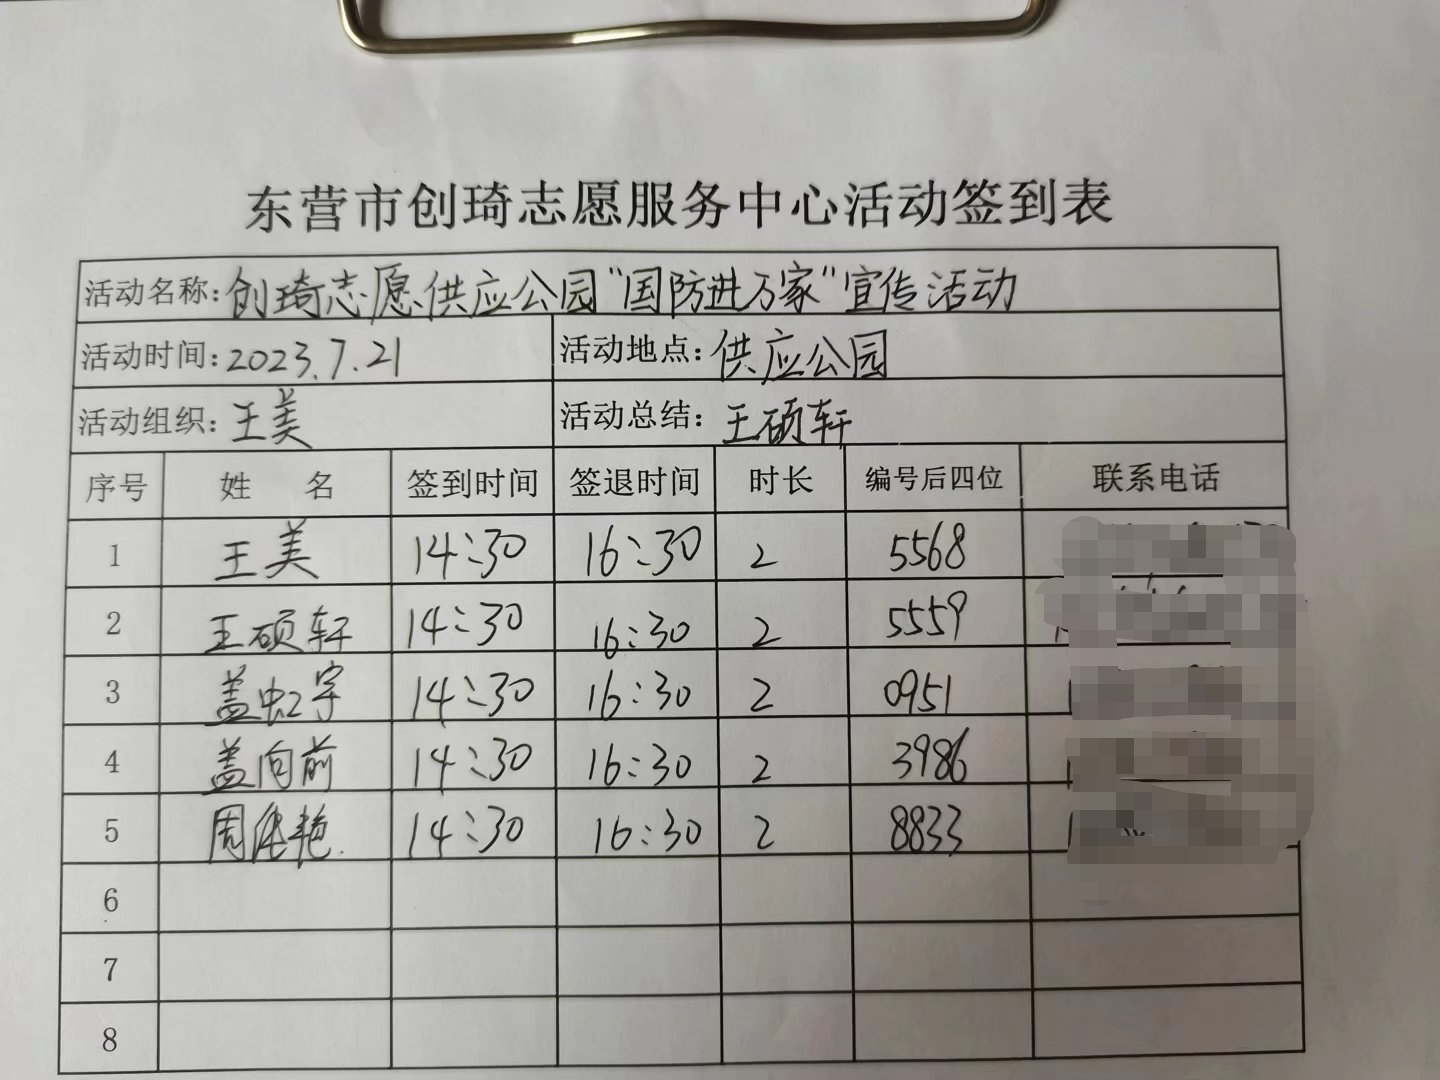 东营市创琦志愿服务中心活动签到表
活动名称:创琦志愿供应公园"国防进万家"宣传活动
活动时间:2023.7.21 活动地点:供应公园
活动组织:王美 活动总结:王硕轩
序号 姓 名 签到时间 签退时间 时长 编号后四位 联系电话
1 王美 14:30 16:30 2 5568
2 王硕轩 14:30 16:30 2 5559
3 盖虹宇 14:30 16:30 2 0951
4 盖向前 14:30 16:30 2 3986
5 周 艳 14:30 16:30 2 8833
6
7
8